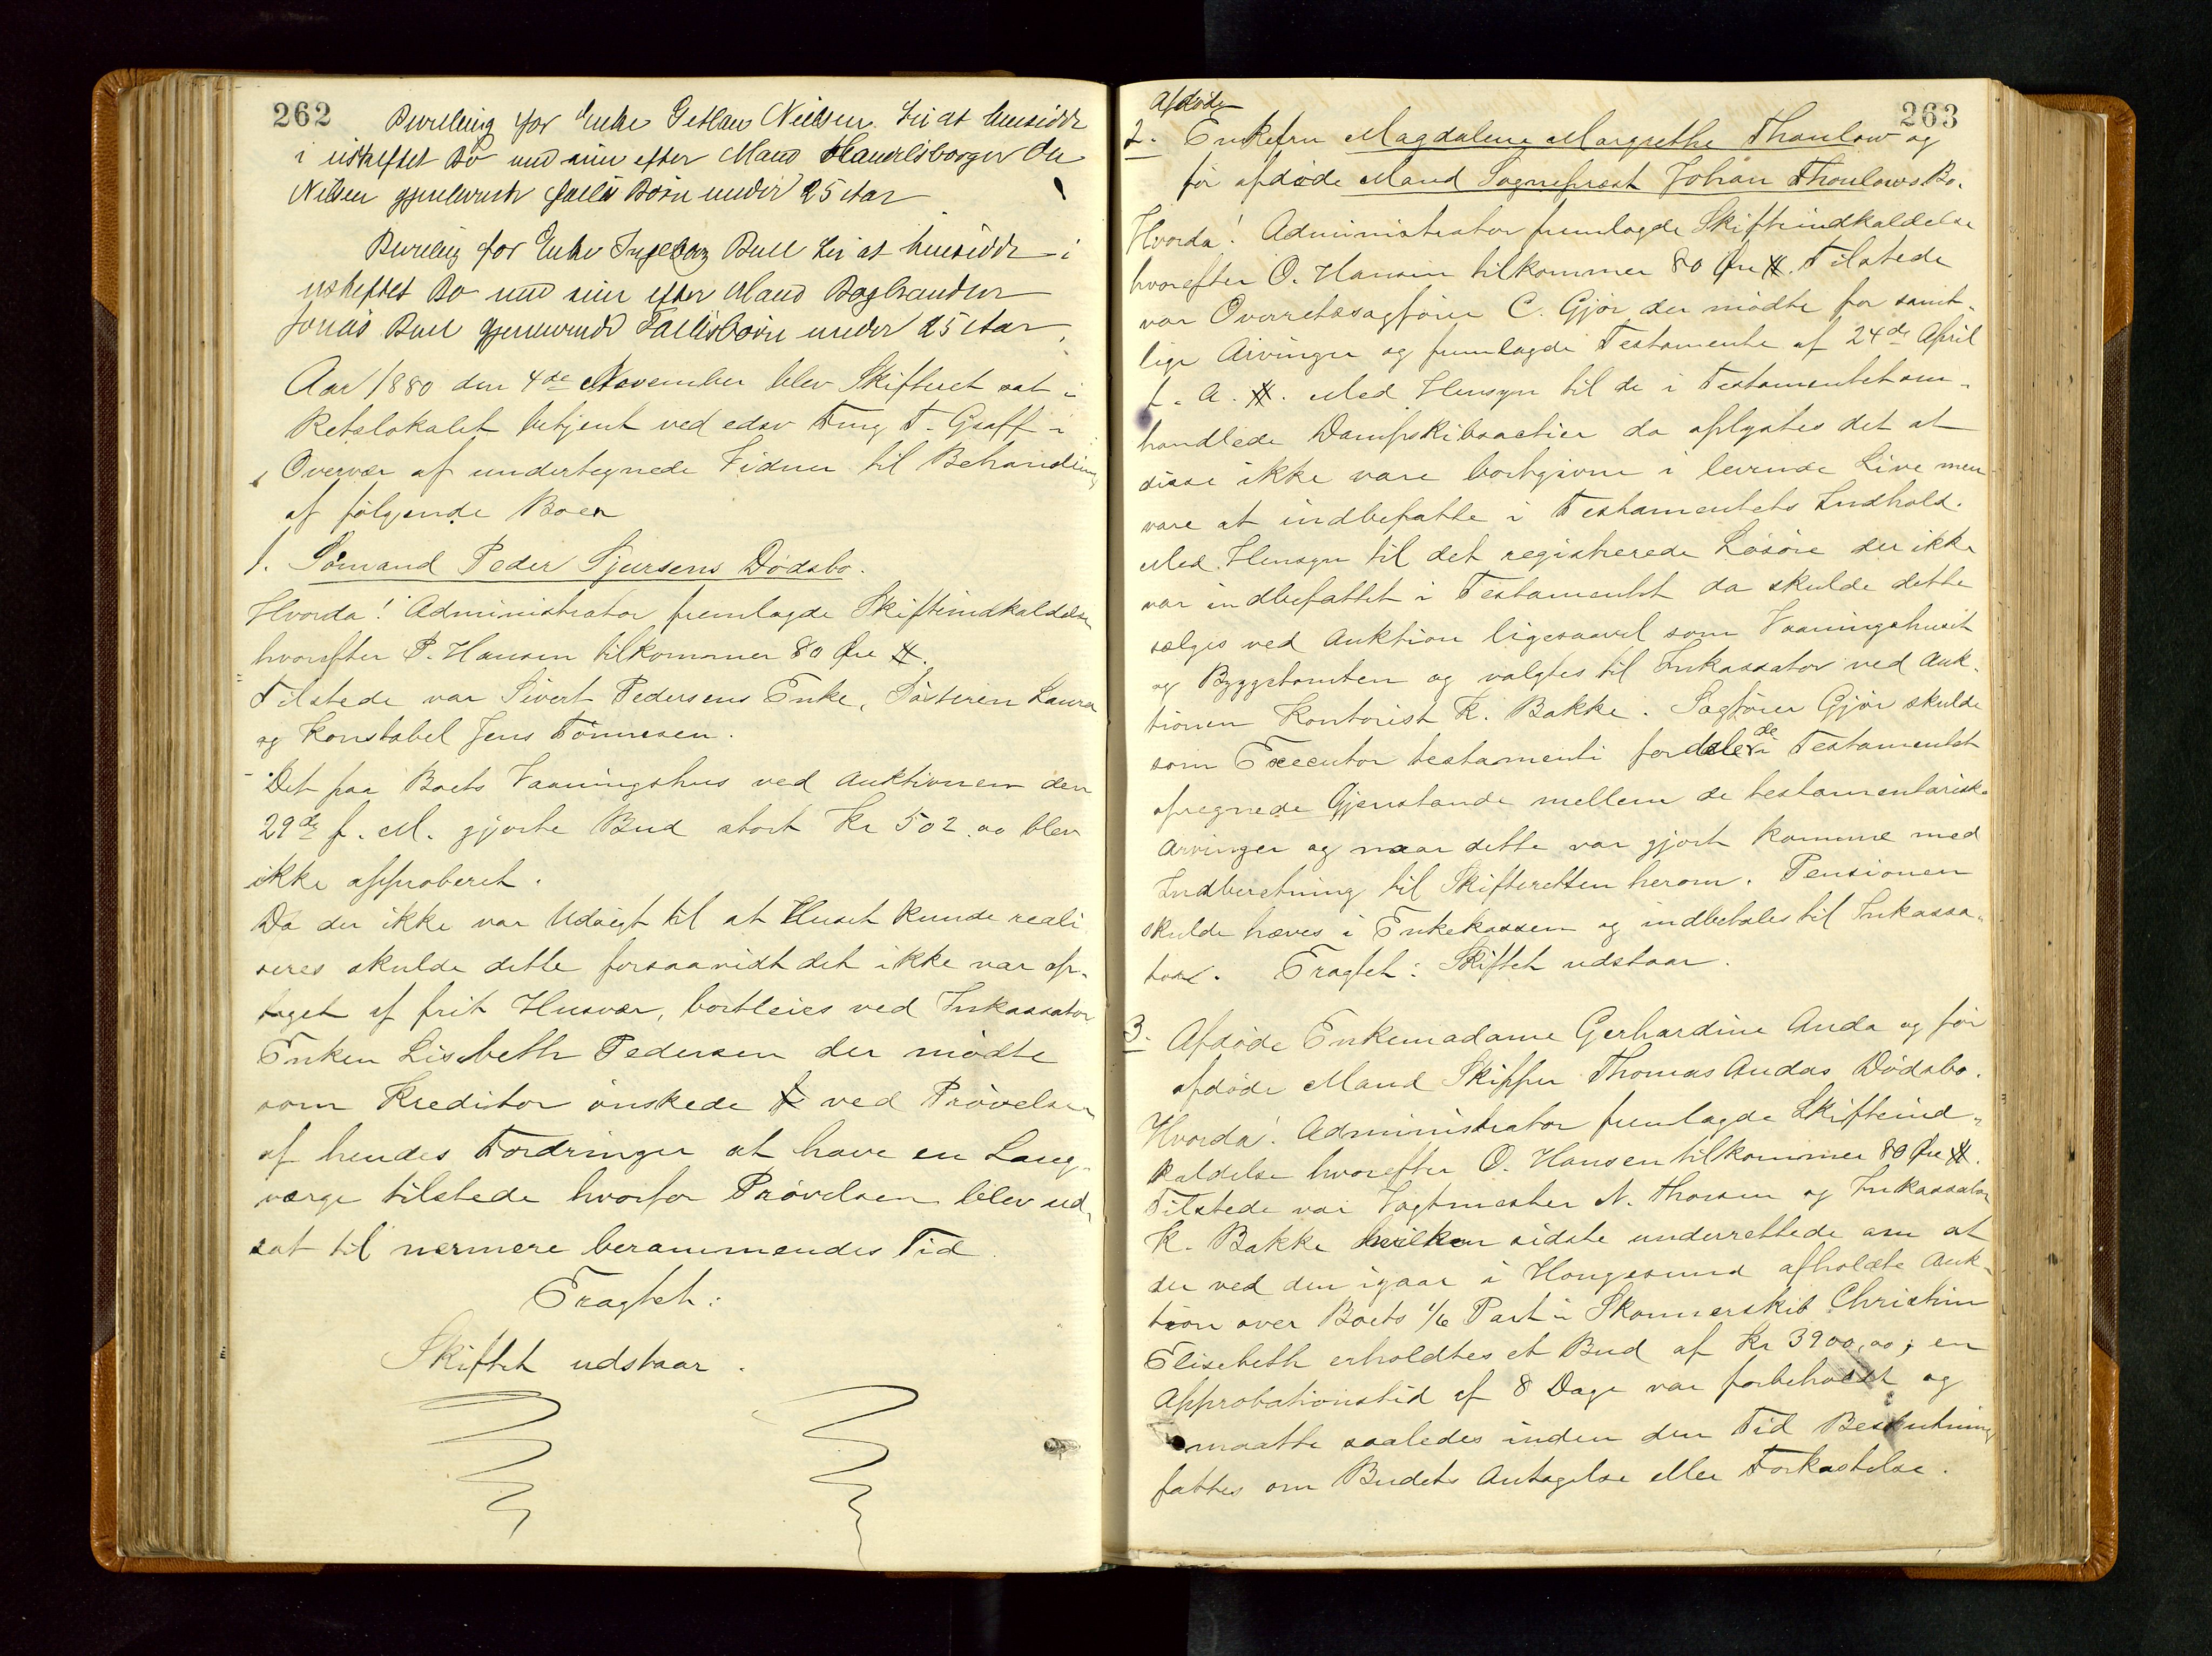 262
Bevilling for Enke Nielsen til at hensidde
i uskiftet Bo med sine efter Mand Handelsborger Ole
Nilsen gjenlevende fælles Børn under 25 Aar
Bevilling for Enke Ingeborg Bull til at hensidde i
uskiftet Bo med sine efter Mand Boghandler
Jonas Bull gjenlevende Fællesbørn under 25 Aar.
Aar 1880 den 4de November blev Skifteret sat i
Retslokalet betjent ved edsv Fmg T. Graff i
Overvær af undertegnede Vidner til Behandling
af følgende Boer
1. Sømand Peder Sjursens Dødsbo.
Hvorda! Administrator fremlagde Skifteindkaldelse
hvorefter P. Hansen tilkommer 80 Øre #.
Tilstede var Sivert Pedersens Enke, Søsteren Laura
og Konstabel Jens Tønnesen.
Det paa Boets Vaaningshus ved Auktionen den
29de f. M. gjorte Bud stort Kr 502.00 blev
ikke approberet.
Da der ikke var Udsigt til at Huset kunde reali
seres skulde dette forsaavidt det ikke var op-
taget af frit Husvær, bortleies ved Inkassator
Enken Lisbeth Pedersen der mødte
som Kreditor ønskede ved Prøvelsen
af hendes Fordringer at have en Laug-
værge tilstede hvorfor Prøvelsen blev ud-
sat til nærmere berammendes Tid.
Eragtet:
Skiftet udstaar.
263
Afdøde
2. Enkefru Magdalene Margrethe Thaulow og
før afdøde Mand Sogneprest Johan Thaulows Bo.
Hvorda! Administrator fremlagde Skifteindkaldelse
hvorefter O. Hansen tilkommer 80 Øre #. Tilstede
var Overretssagfører C. Gjør der mødte for samt-
lige Arvinger og fremlagde Testamente af 24de April
f. A. #. Med Hensyn til de i Testamentet om-
handlede Dampskibsactier da oplystes det at
disse ikke vare bortgivne i levende Live men
vare at indbefatte i Testamentets Indhold.
Med Hensyn til det registrerede Løsøre der ikke
var indbefattet i Testamentet da skulde dette
sælges ved Auktion ligesaavel som Vaaningshuset
og Byggetomten og valgtes til Inkassator ved Auk-
tionen Kontorist K. Bakke. Sagfører Gjør skulde
som Executor testamenti fordele de i Testamentet
opregnede Gjenstande mellem de testamentariske
Arvinger og naar dette var gjort komme med
Indberetning til Skifteretten herom. Pensionen
skulde hæves i Enkekassen og indbetales til Inkassa-
tor. Eragtet: Skiftet udstaar.
3. Afdøde Enkemadame Gerhardine Anda og før
afdøde Mand Skipper Thomas Andas Dødsbo.
Hvorda! Administrator fremlagde Skifteind-
kaldelse hvorefter O. Hansen tilkommer 80 Øre #.
Tilstede var Vagtmester N. Thorsen og Inkassator
K. Bakke hvilken sidste underrettede om at
der ved den igaar i Haugesund afholdte Auk-
tion over Boets 1/6 Part i Skonnerskib Christine
Elisebeth erholdtes et Bud af Kr 3900,00; en
Approbationstid af 8 Dage var forbeholdt og
maatte saaledes inden den Tid Beslutning
fattes om Budets Antagelse eller Forkastelse.